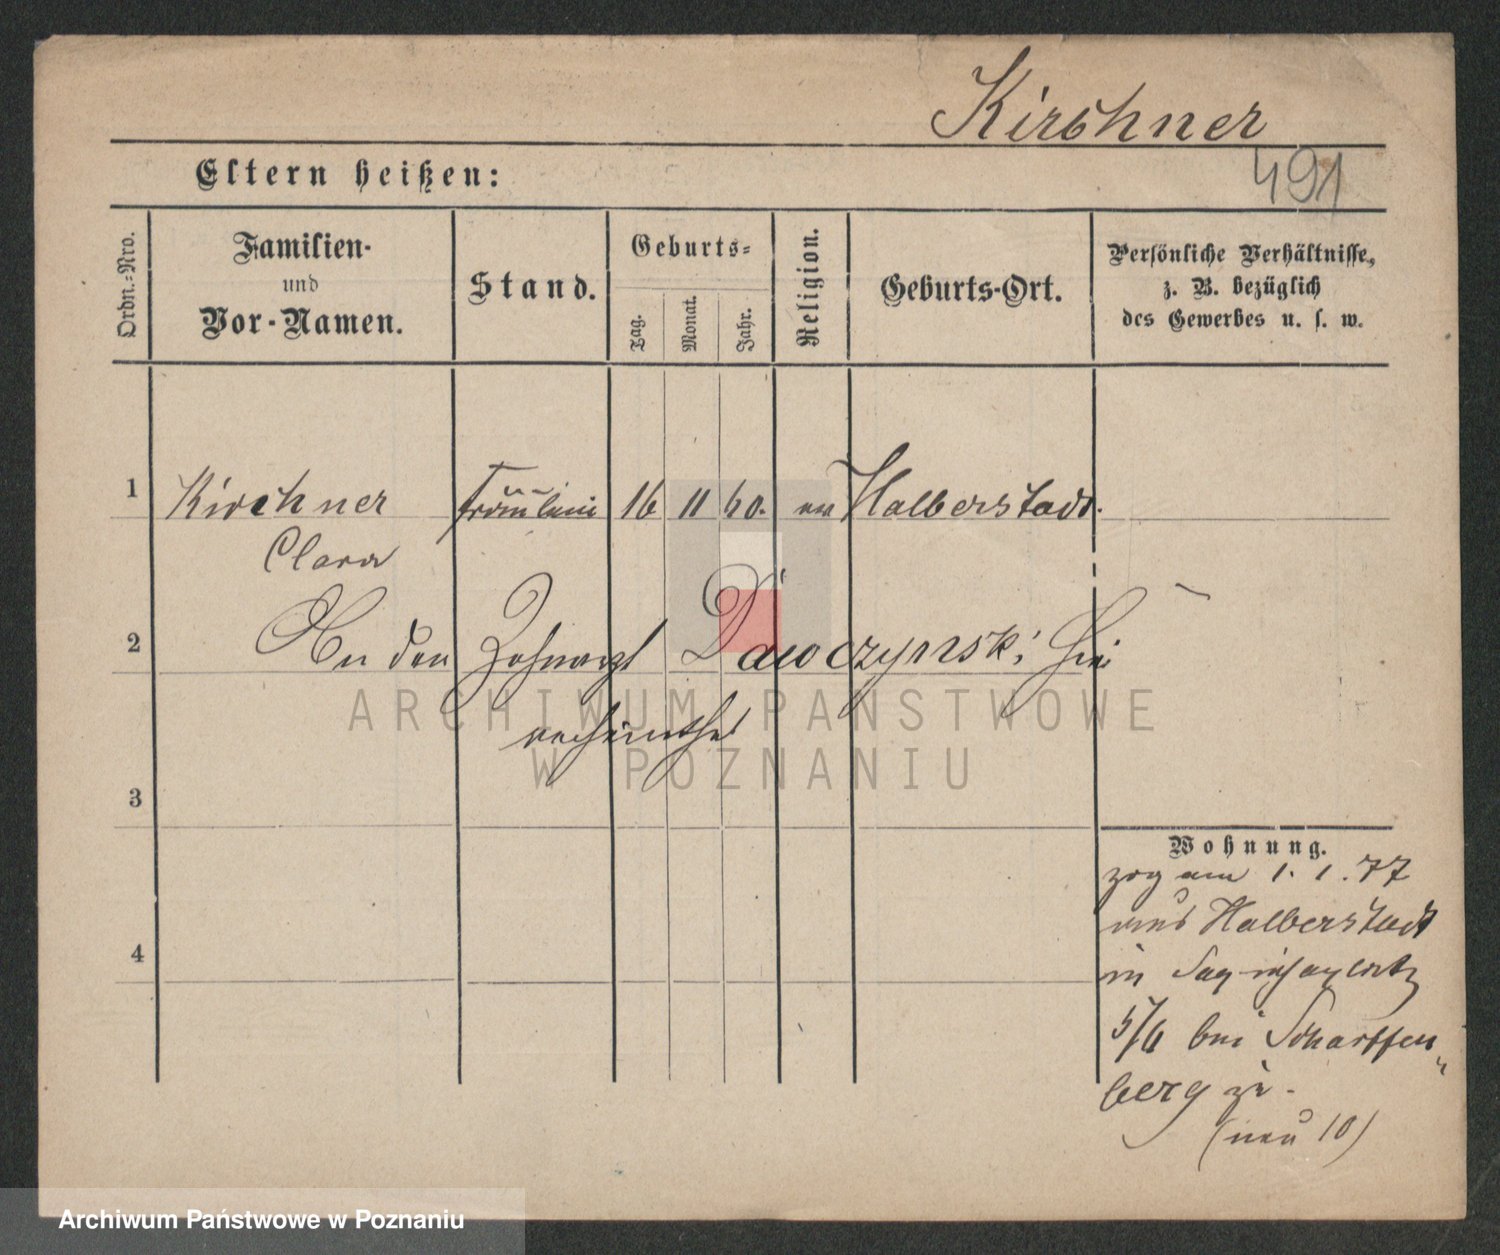 Kirschner
491
Eltern heißen:
Ordn.-Nro.
Familien-
und
Vor-Namen.
Stand.
Geburts-
Tag.
Monat.
Jahr.
Religion.
Geburts-Ort.
Persönliche Verhältnisse,
z. B. bezüglich
des Gewerbes u. s. w.
1 Kirchner Fräulein 16 11 60. ev Halberstadt.
Clara
2 An den Zahnarzt Dawczynski hier
verheirathet
3
4
Wohnung.
zog am 1. 1. 77
aus Halberstadt
in
5/6 bei Scharffen„
berg zu.
(neu 10)
ARCHIWUM PAŃSTWOWE
W POZNANIU
Archiwum Państwowe w Poznaniu